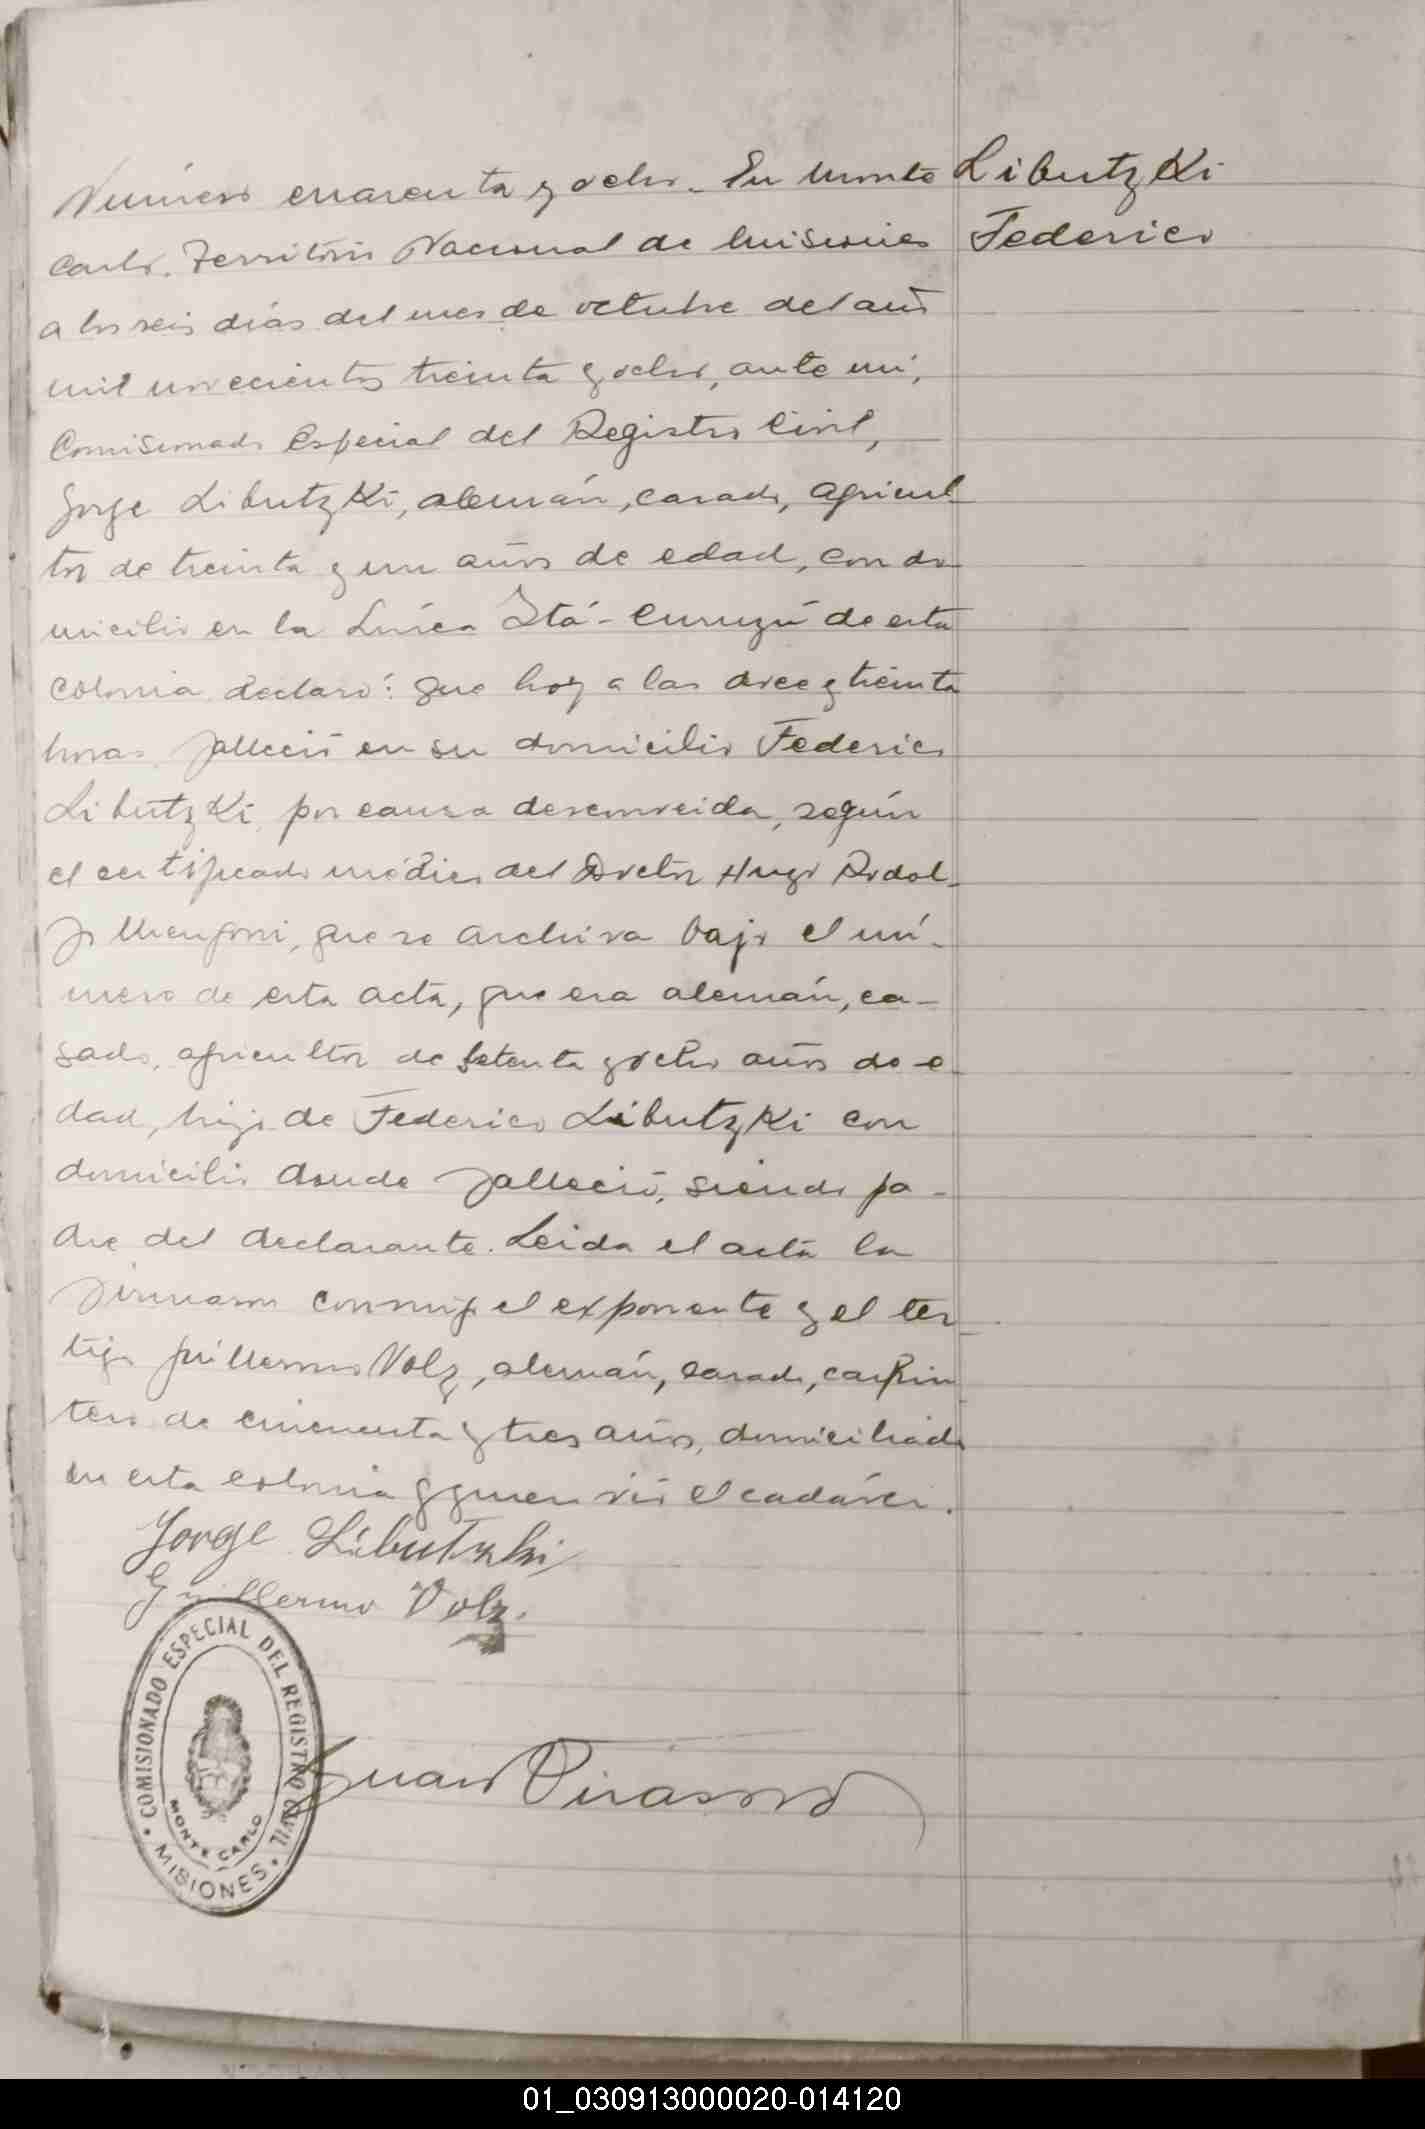 Número cuarenta y ocho.- En Monte
Carlo. Territorio Nacional de Misiones
a los seis dias del mes de octubre del año
mil novecientos treinta y ocho, ante mi,
Comisionado Especial del Registro Civil,
Jorge Libutzki, alemán, casado, agricul
tor de treinta y un años de edad, con do
micilio en la Línea Itá-Curuzú de esta
colonia declaró: que hoy a las doce y treinta
horas falleció en su domicilio Federico
Libutzki, por causa desconocida, según
el certificado médico del Doctor Hugo Rodol-
fo Mengoni, que se archiva bajo el nú-
mero de esta acta, que era alemán, ca-
sado, agricultor de setenta y ocho años de e-
dad, hijo de Federico Libutzki con
domicilio donde falleció, siendo pa-
dre del declarante. Leida el acta la
firmaron conmigo el exponente y el tes
tigo Guillermo Volz, alemán, casado, carpin
tero de cincuenta y tres años, domiciliado
en esta colonia y quien vió el cadáver.
Libutzki
Federico
Jorge Libutzki
Guillermo Volz.
COMISIONADO ESPECIAL DEL REGISTRO CIVIL
MONTE CARLO
MISIONES
Juan
01_030913000020-014120